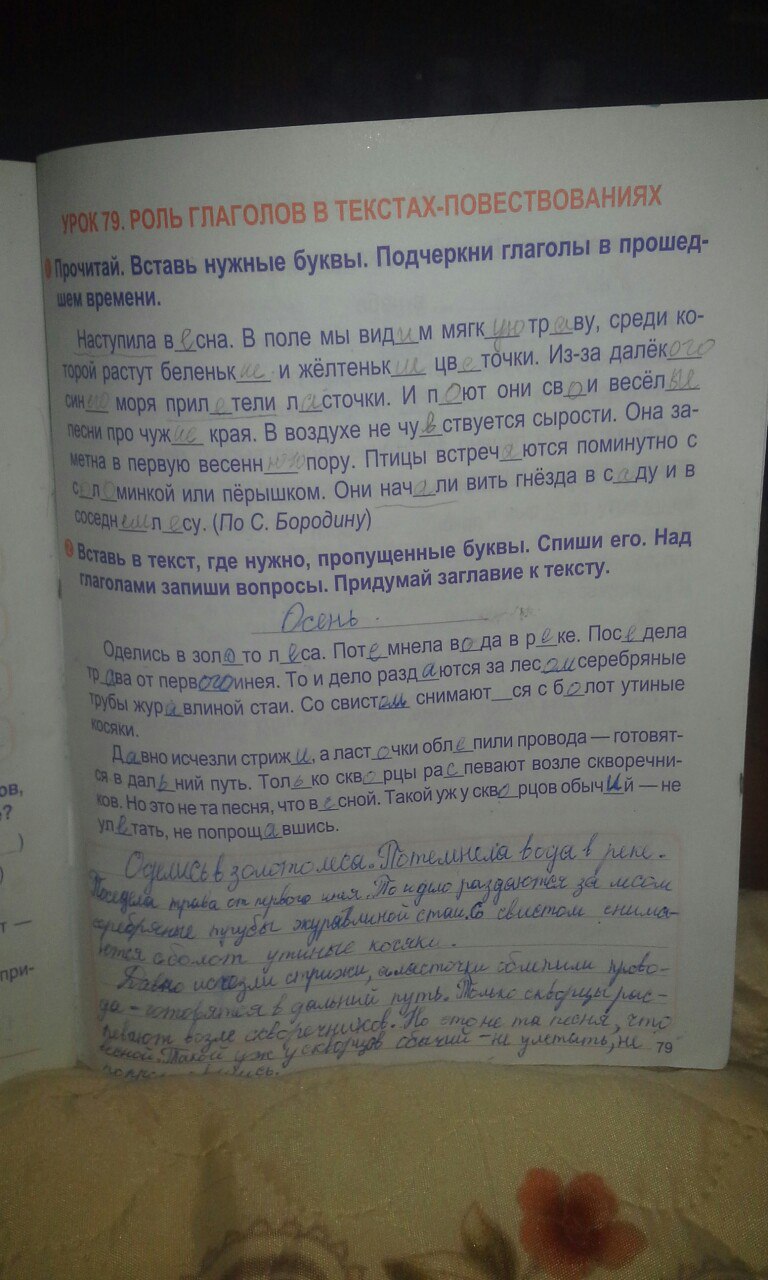 УРОК 79. РОЛЬ ГЛАГОЛОВ В ТЕКСТАХ-ПОВЕСТВОВАНИЯХ
Прочитай. Вставь нужные буквы. Подчеркни глаголы в прошед-
шем времени.
Наступила весна. В поле мы видим мягкую траву, среди ко-
торой растут беленькие и жёлтенькие цветочки. Из-за далёкого
синего моря прилетели ласточки. И поют они свои весёлые
песни про чужие края. В воздухе не чувствуется сырости. Она за-
метна в первую весеннюю пору. Птицы встречаются поминутно с
соломинкой или пёрышком. Они начали вить гнёзда в саду и в
соседнем лесу. (По С. Бородину)
Вставь в текст, где нужно, пропущенные буквы. Спиши его. Над
глаголами запиши вопросы. Придумай заглавие к тексту.
Осень
Оделись в золото леса. Потемнела вода в реке. Поседела
трава от первого инея. То и дело раздаются за лесом серебряные
трубы журавлиной стаи. Со свистом снимают__ся с болот утиные
косяки.
Давно исчезли стрижи, а ласточки облепили провода — готовят-
ся в дальний путь. Только скворцы распевают возле скворечни-
ков. Но это не та песня, что весной. Такой уж у скворцов обычий — не
улетать, не попрощавшись.
Оделись в золото леса. Потемнела вода в реке.
Поседела трава от первого инея. То и дело раздаются за лесом
серебряные трубы журавлиной стаи. Со свистом снима-
ются с болот утиные косяки.
Давно исчезли стрижи, а ласточки облепили прово-
да - готовятся в дальний путь. Только скворцы рас-
певают возле скворечников. Но это не та песня, что
весной. Такой уж у скворцов обычий - не улетать, не
79
ов,
ь?
)
)
т —
при-